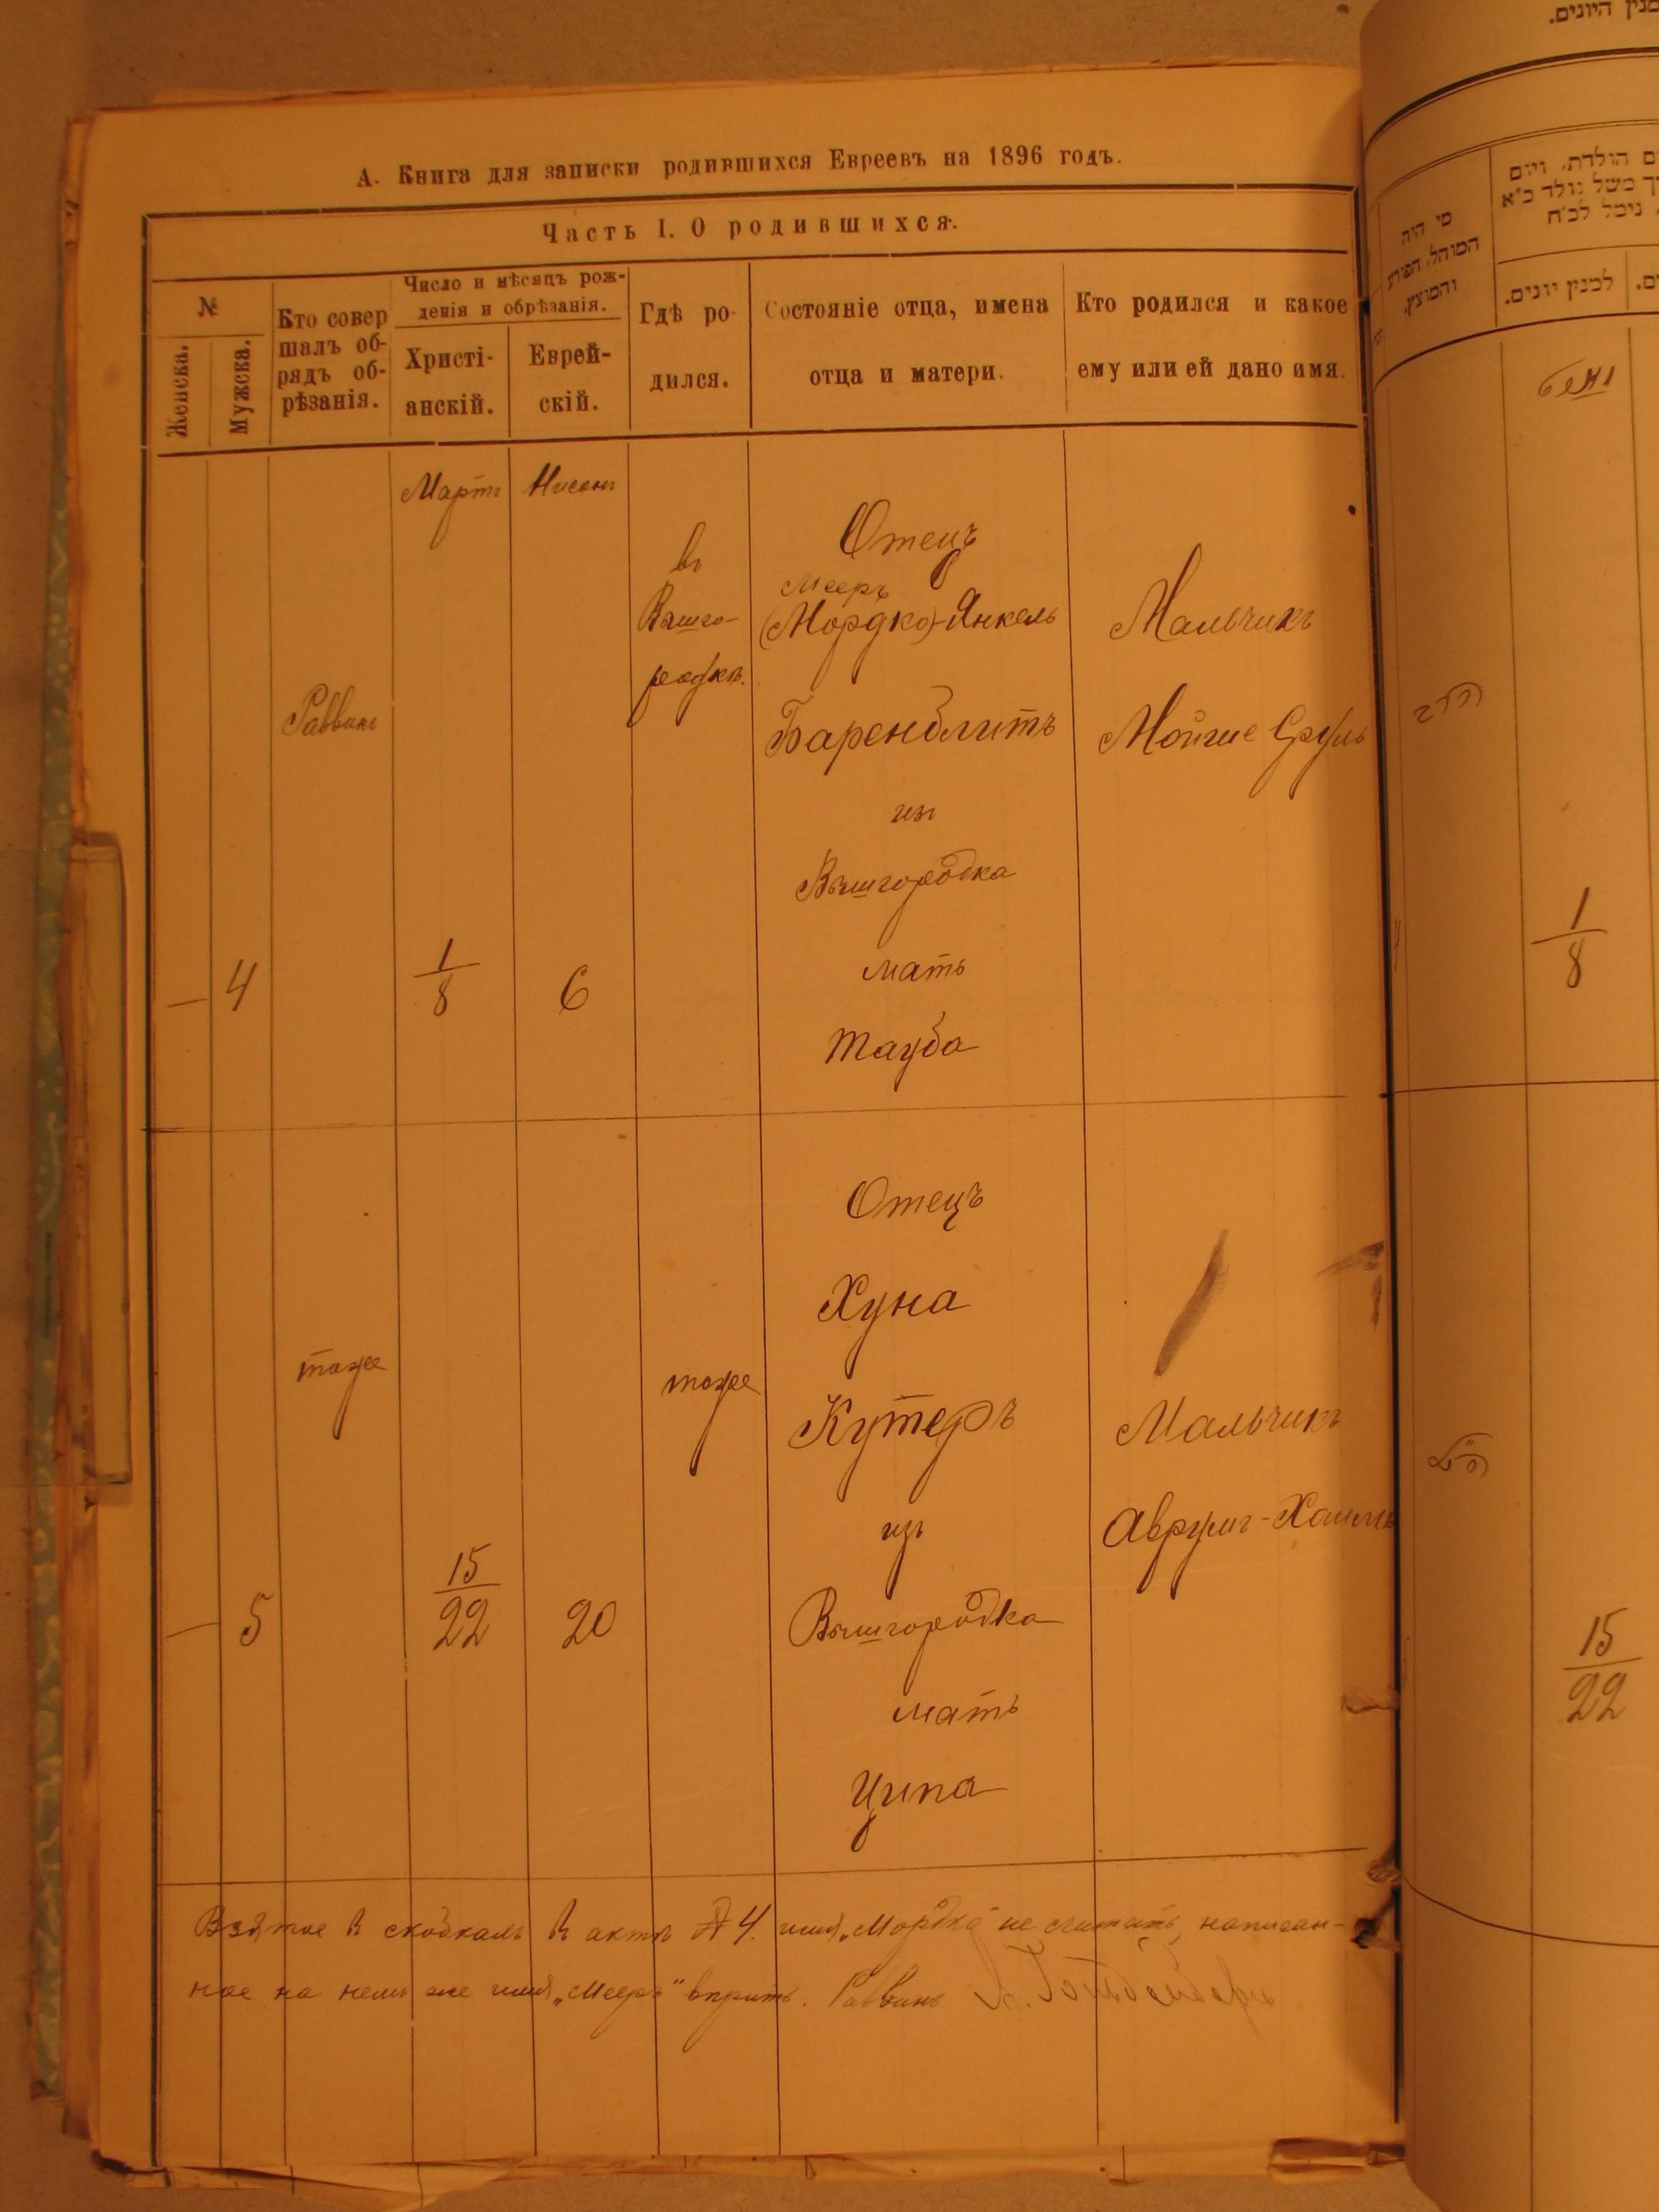 А. Книга для записки родившихся Евреевъ на 1896 годъ.
Часть I. О родившихся.
№
Женска.
Мужска.
Кто совер
шалъ об-
рядъ об-
рѣзанія.
Число и мѣсяцъ рож-
денія и обрѣзанія.
Христі-
анскій.
Еврей-
скій.
Гдѣ ро-
дился.
Состояніе отца, имена
отца и матери.
Кто родился и какое
ему или ей дано имя.
Мартъ
Нисонъ
—
4
Раввинъ
1
8
6
въ
Вышго-
родкѣ.
Отецъ
Мееръ
(Мордко)-Янкель
Баренблитъ
изъ
Вышгородка
мать
Тауба
Мальчикъ
Мойше Сруль
—
5
тоже
15
22
20
тоже
Отецъ
Хуна
Кутеръ
изъ
Вышгородка
мать
Ципа
Мальчикъ
Аврумъ-Хаимъ
Взятое въ скобкамъ въ актѣ № 4. имя „Мордко" не считать, написан-
ное на немъ же имя „Мееръ" вѣрить. Раввинъ
מנין היונים.
מי היה
המוהל, הפורע
והמוצץ.
ם הולדת, ויום
למנין יונים.
1
8
15
22